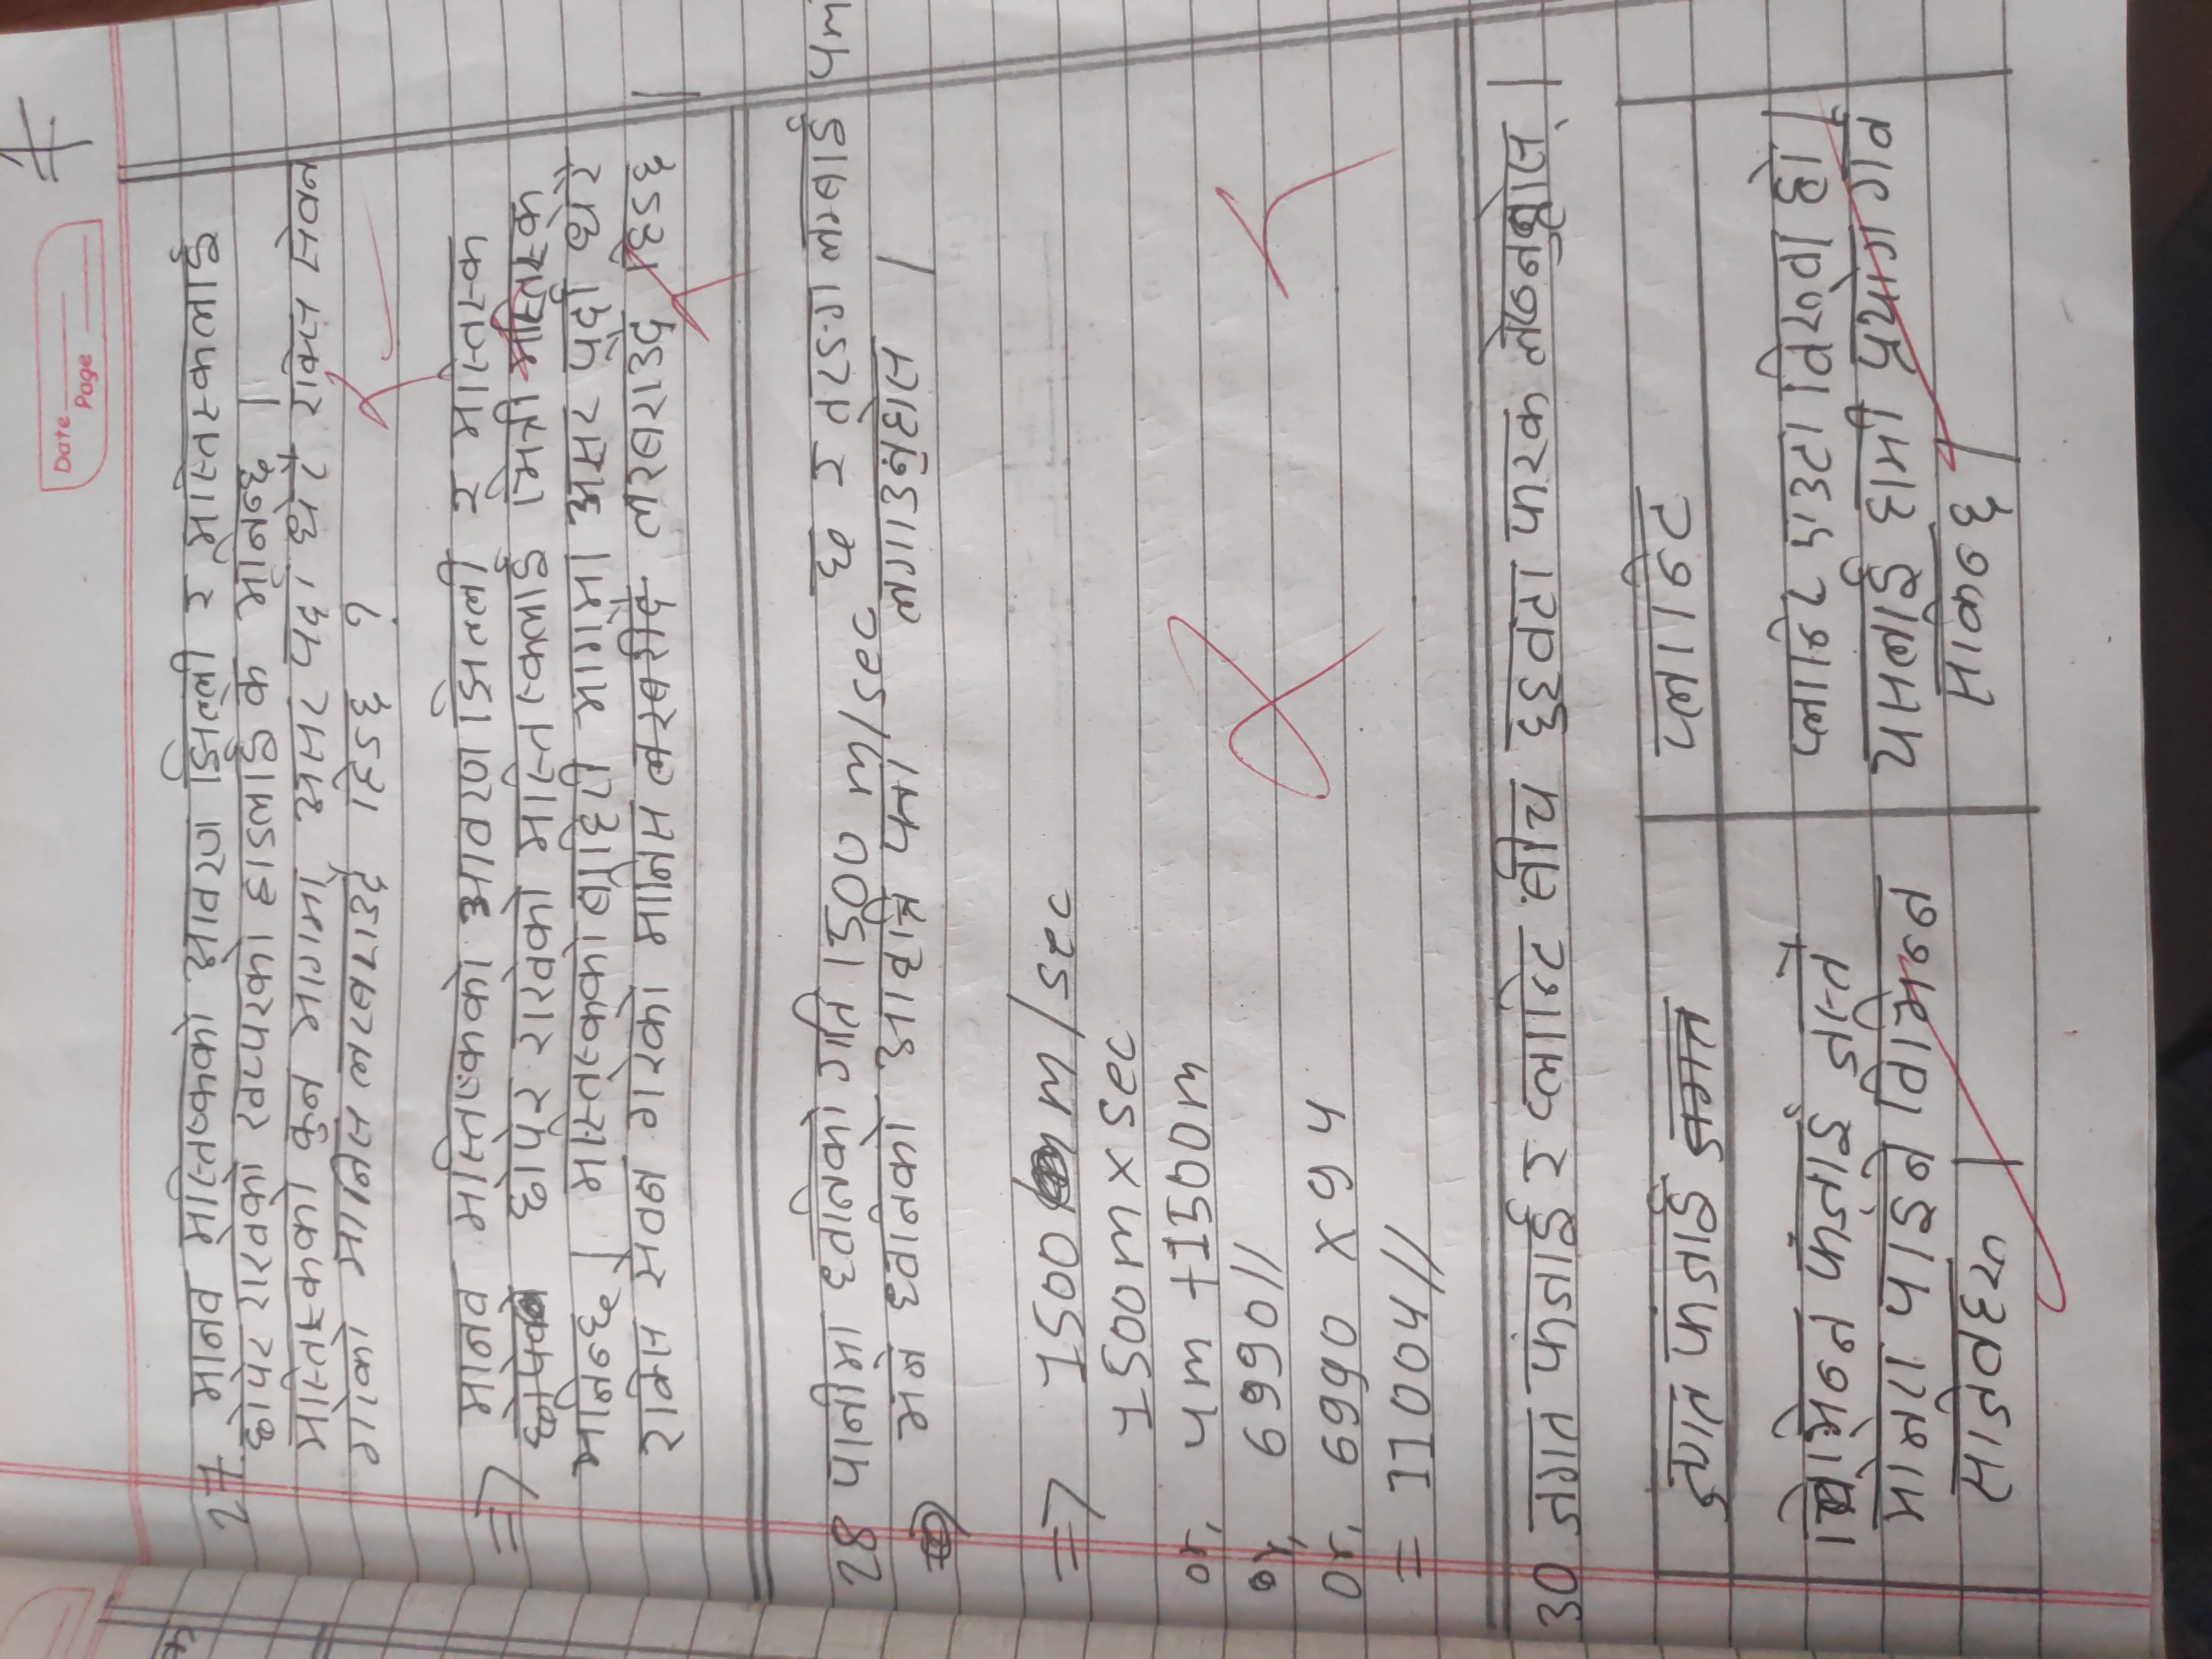 Date
Page
27. मानव मस्तिष्कको आवरण झिल्ली र मास्तिस्कलाई
छोपेर राखेको खप्परको हाडलाई के भनिन्छ ।
मास्तिस्कको कुन भागमा असर पर्दा धेरै राक्सि सेवन
गरेको मानिस लरबराउदै हिडछ ?
=> मानव मस्तिष्कको आवरण झिल्ली र मास्तिस्क
छोपेर राखेको मास्तिस्कलाई भित्री मस्तिस्क
भनिन्छ । मास्तिस्कको बाहिरी भागमा असर पर्दा धेरै
राक्सि सेवन गरेको मानिस लरबराउदै हिडछ ।
28 पानीमा ध्वनिको गति 1500 m/sec छ र तरङग लम्बाई 4m
भने ध्वनिको आवृत्ति पत्ता लगाउनुहोस ।
=> 1500 m/sec
1500m x sec
or, 4m +1500m
or, 6990//
Or, 6990 x 94
= 11004//
30 जगत फंजाई र प्लान्टि बीच दुइवटा फरक लेख्नुहोस् ।
जगत फंजाई जगत
प्लान्टि
विभिन्न फंजाई जस्तै
मोनेरा पाइने विभिन्न
साजिवहरू ।
प्लान्टि एउटा विरूवा हो ।
यसलाई हामी प्रयोग गर्न
सकिन्छ ।